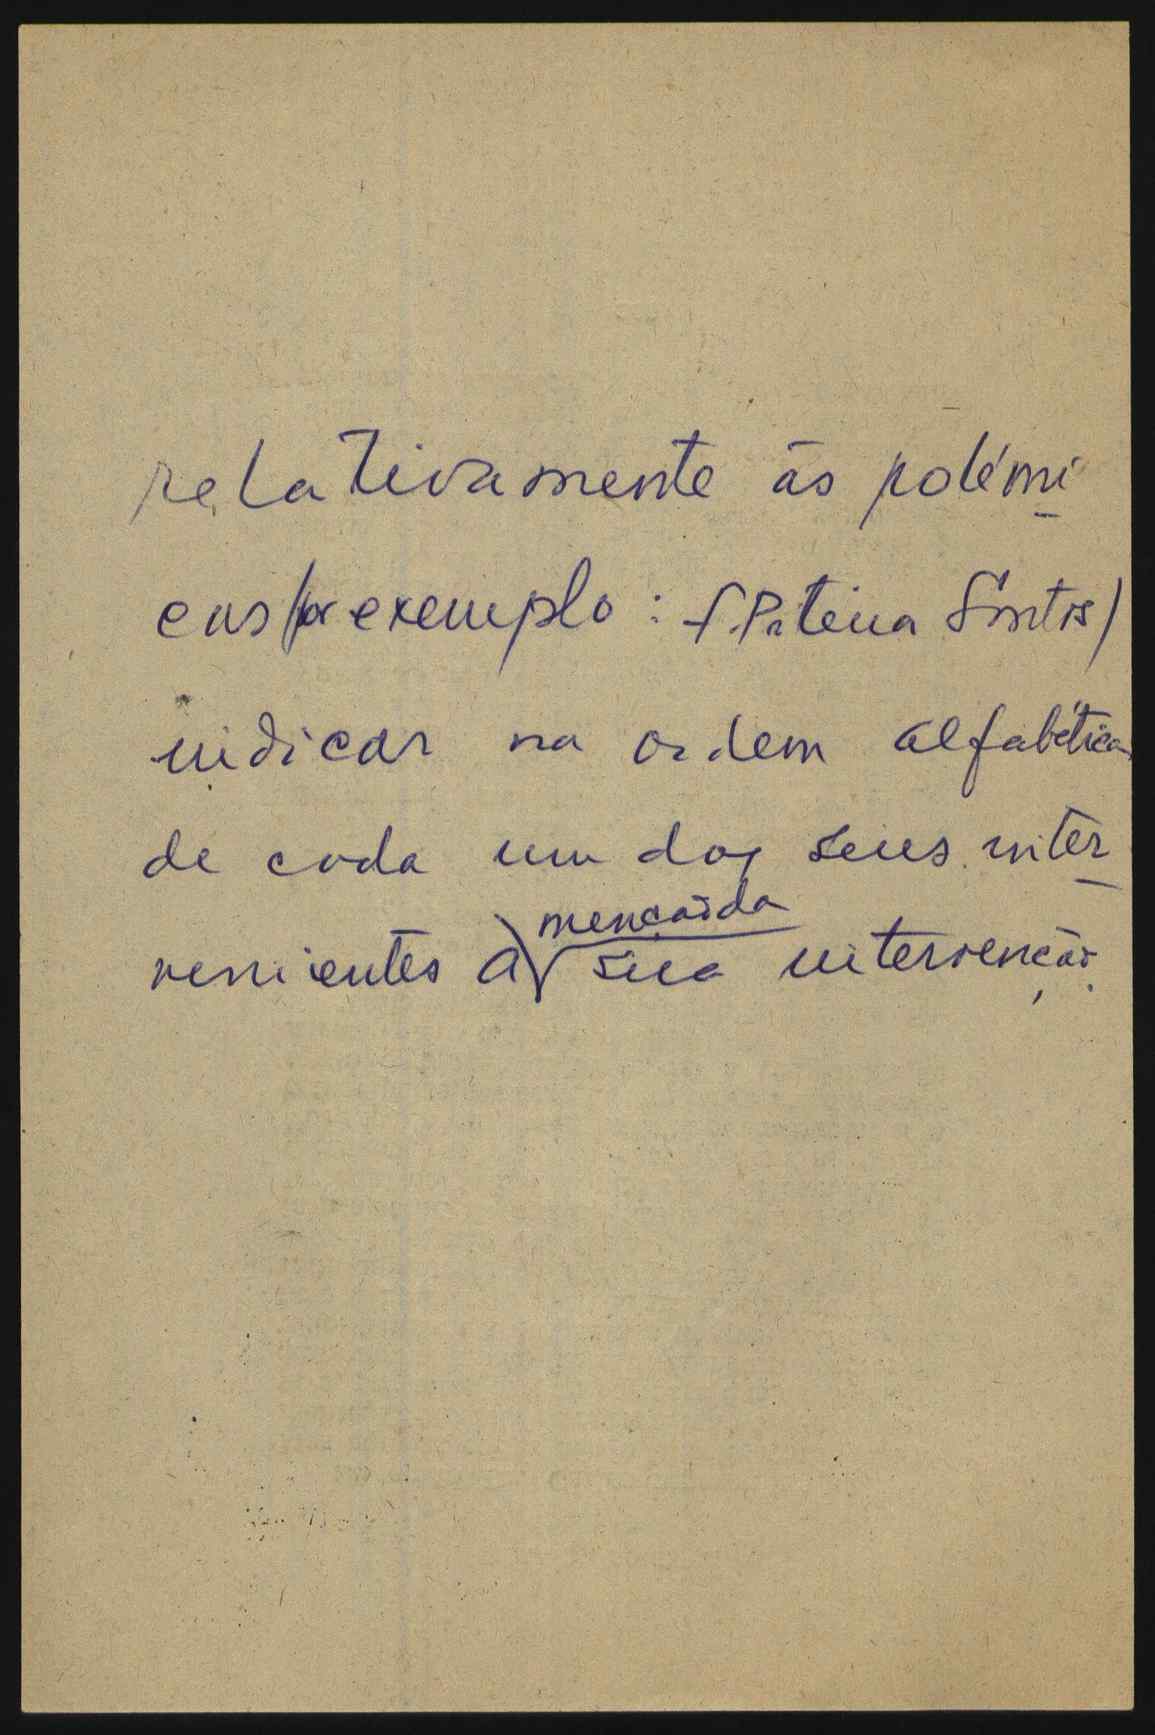 relativamente às polémi
cas (por exemplo: f. Pateira Santos)
indicar na ordem alfabética
de cada um dos seus inter
menção da
venientes a sua intervenção.